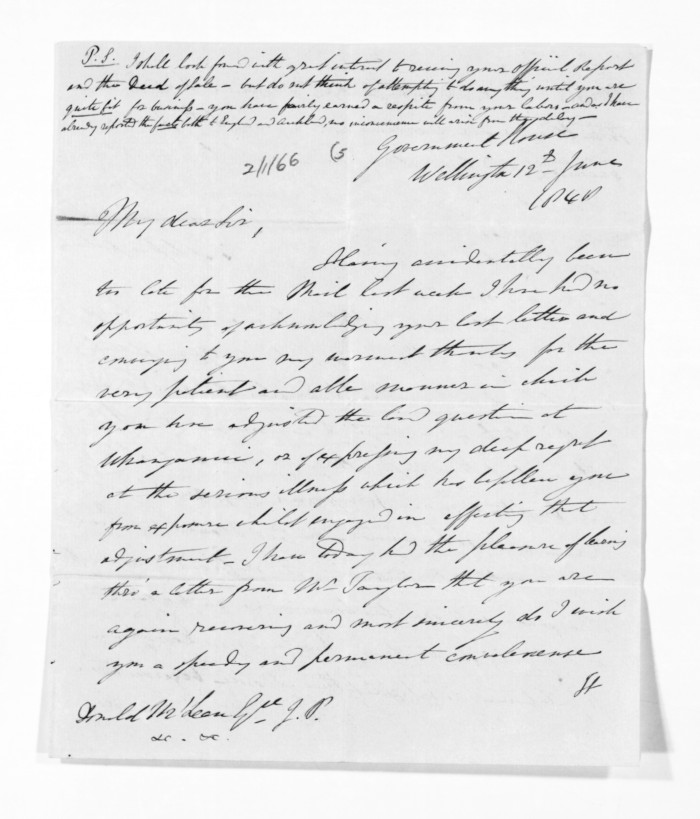 P.S. I shall look forward with great interest to receiving your Official Report
and the Deed of Sale - but do not think of attempting to do any thing until you are
quite fit for business - you have fairly earned a respite from your labors - and as I have
already reported the facts both to England and Auckland, no inconvenience will arise from the delay -
2/1/66 (5
Government House
Wellington 12th June
1848
My dear Sir,
Having accidentally been
too late for the Mail last week I have had no
opportunity of acknowledging your last letters and
conveying to you my warmest thanks for the
very patient and able manner in which
you have adjusted the land question at
Whanganui, or of expressing my deep regret
at the serious illness which has befallen you
from exposure whilst engaged in effecting that
adjustment - I have today had the pleasure of hearing
thro' a letter from Mr Taylor that you are
again recovering and most sincerely do I wish
you a speedy and permanent convalescence
Donald McLean Esqre J.P.
&c. &c.